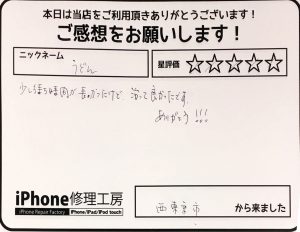 本日は当店をご利用頂きありがとうございます!
ご感想をお願いします!
ニックネーム
うどん
星評価 ☆☆☆☆☆
少し待ち時間が長かったけど、治って良かったです。
ありがとう!!!
iPhone修理工房
iPhone Repair Factory iPhone/iPad/iPod touch
西東京市 から来ました